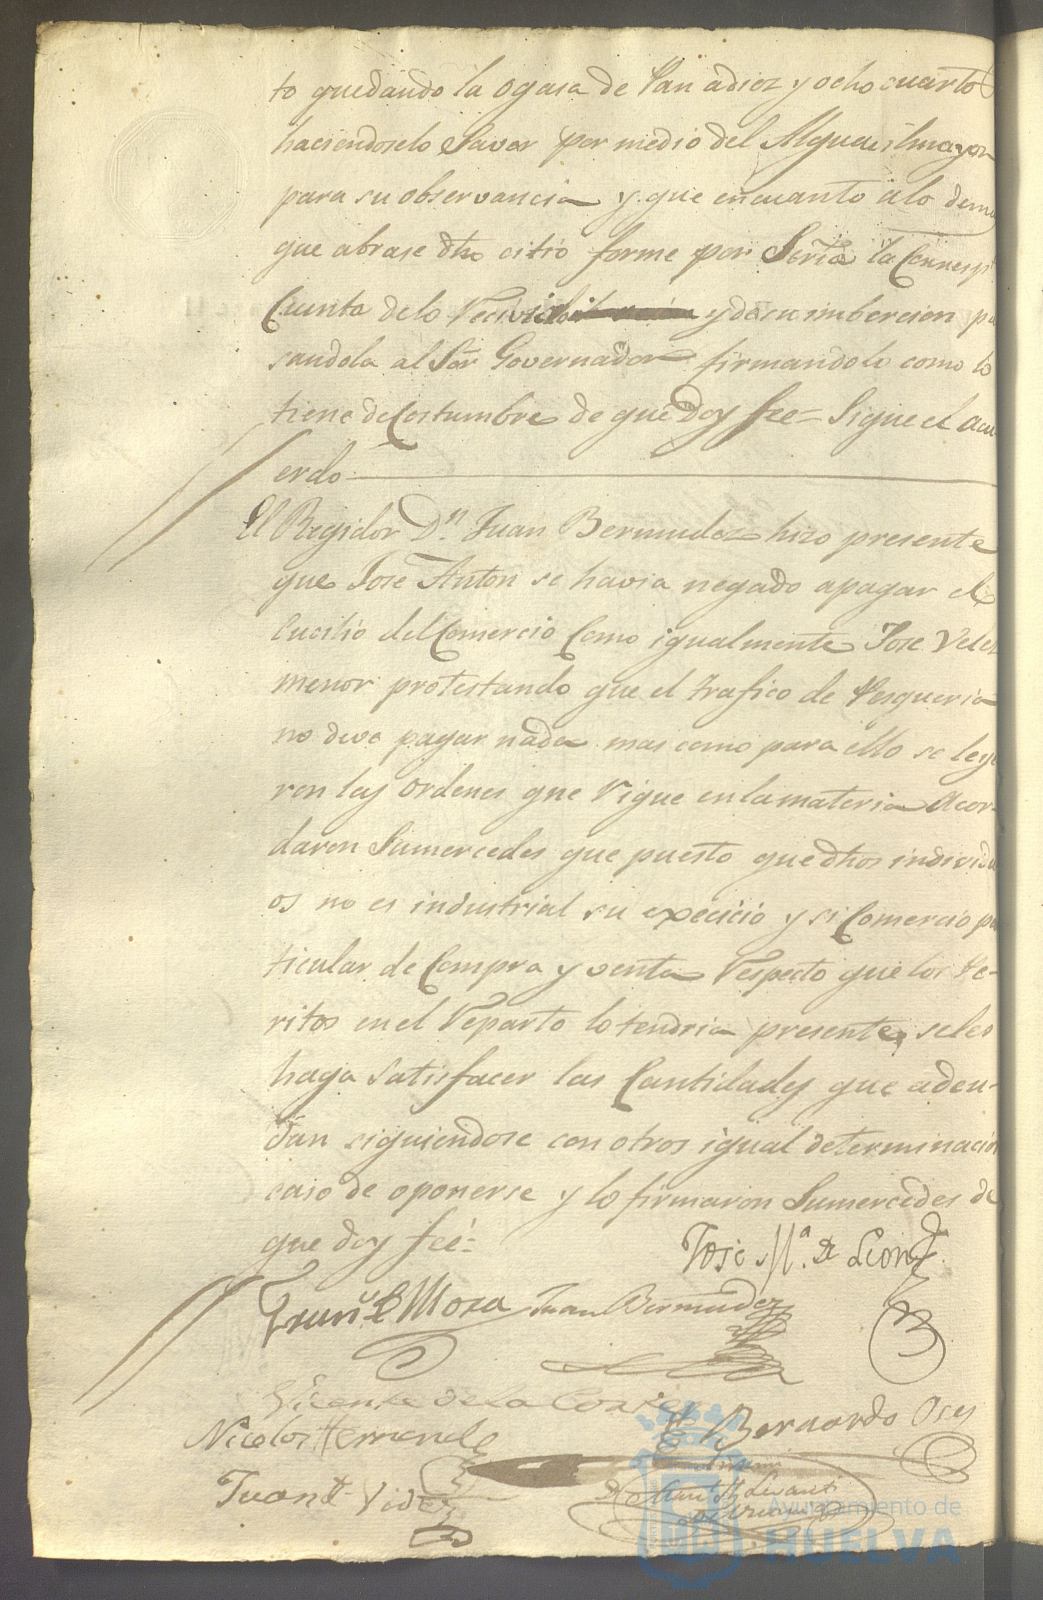 to quedando la ogasa de Pan adiez y ocho cuarto
haciendoselo Saver por medio del Alguasilmayor
para su observancia y que encuanto alo dema
que abrase dho citio forme por Sertª la Corresp
Cuenta delo Recivido y desu imbercion pa
sandola al Sor Governador firmandolo como lo
tiene deCostumbre de que doy fee= Sigue el acu-
erdo
El Regidor Dn. Juan Bermudez hizo presente
que Jose Anton se havia negado apagar el
Cucilio delComercio Como igualmente Jose Veles
menor protestando que el trafico de Pesqueria
no deve pagar nada mas como para ello se leye
ron las ordenes que Rigue enlamateria Acor-
daron Sumercedes que puesto quedhos individu
os no es industrial su expecicio y si Comercio pa
ticular de Compra y venta Respecto que los Pe-
ritos enel Reparto lo tendria presente, seles
haga satisfacer las Cantidades que adeu-
dan siguiendose con otros igual determinacion
caso de oponerse y lo firmaron Sumercedes de
que doy feé=
Jose Mª. de Leon
Mora Juan Bermudez
Vicente de la Corte
Bernardo Oses
Nicolos Hernande
Juan de Vides
Ayuntamiento de
HUELVA